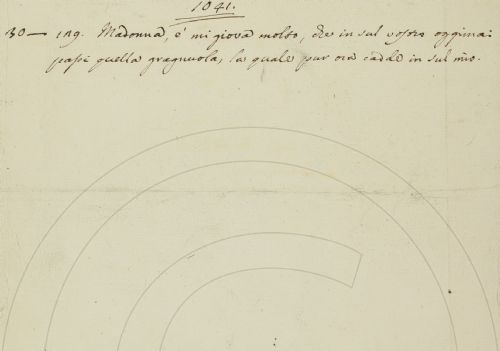 1041.
30 — 129. Madonna, e' mi giova molto, che in sul vostro oggimai
passi quella gragnuola, la quale pur ora cadde in sul mio.